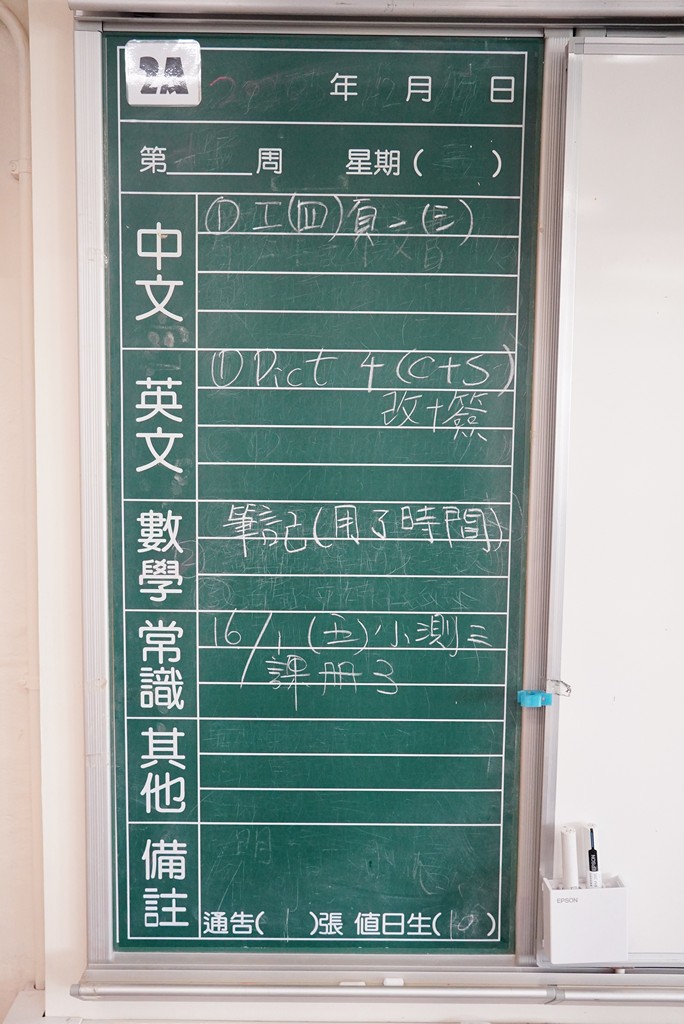 2A
年 月 日
第______周 星期( )
中文
① 工(四)頁二(三)
英文
① Dict 4 (C+S)
改+簽
數學
筆記(用了時間)
常識
16/1 (五)小測三
課冊3
其他
備註
通告( )張 值日生( )
EPSON
EPSON